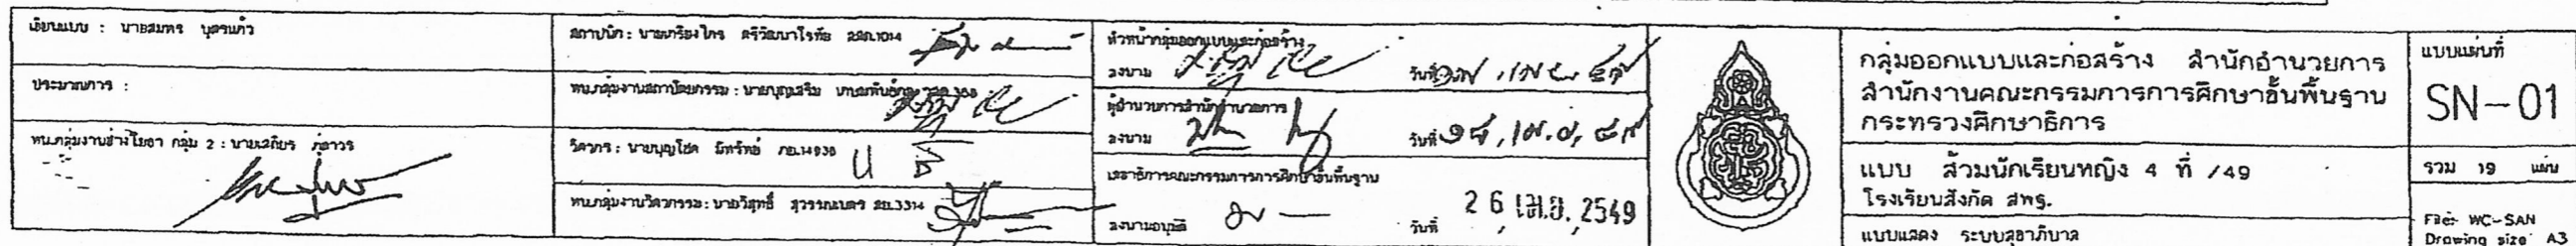 เขียนแบบ : นายสมพร บุตรแก้ว
ประมาณการ :
หน.กลุ่มงานช่างโยธา กลุ่ม 2 : นายเสถียร ภู่ถาวร
สถาปนิก : นายเกรียงไกร ศรีวัฒนาโรทัย
หน.กลุ่มงานสถาปัตยกรรม : นายบุญเสริม
วิศวกร : นายบุญโชค
หน.กลุ่มงานวิศวกรรม : นายวิสุทธิ์ สุวรรณเนตร
หัวหน้ากลุ่มออกแบบและก่อสร้าง
ลงนาม
วันที่
ผู้อำนวยการสำนักอำนวยการ
ลงนาม
วันที่
เลขาธิการคณะกรรมการการศึกษาขั้นพื้นฐาน
ลงนามอนุมัติ
วันที่ 26 เม.ย. 2549
กลุ่มออกแบบและก่อสร้าง สำนักอำนวยการ
สำนักงานคณะกรรมการการศึกษาขั้นพื้นฐาน
กระทรวงศึกษาธิการ
แบบ ส้วมนักเรียนหญิง 4 ที่ /49
โรงเรียนสังกัด สพฐ.
แบบแสดง ระบบสุขาภิบาล
แบบแผ่นที่
SN-01
รวม 19 แผ่น
File: WC-SAN
Drawing size A3